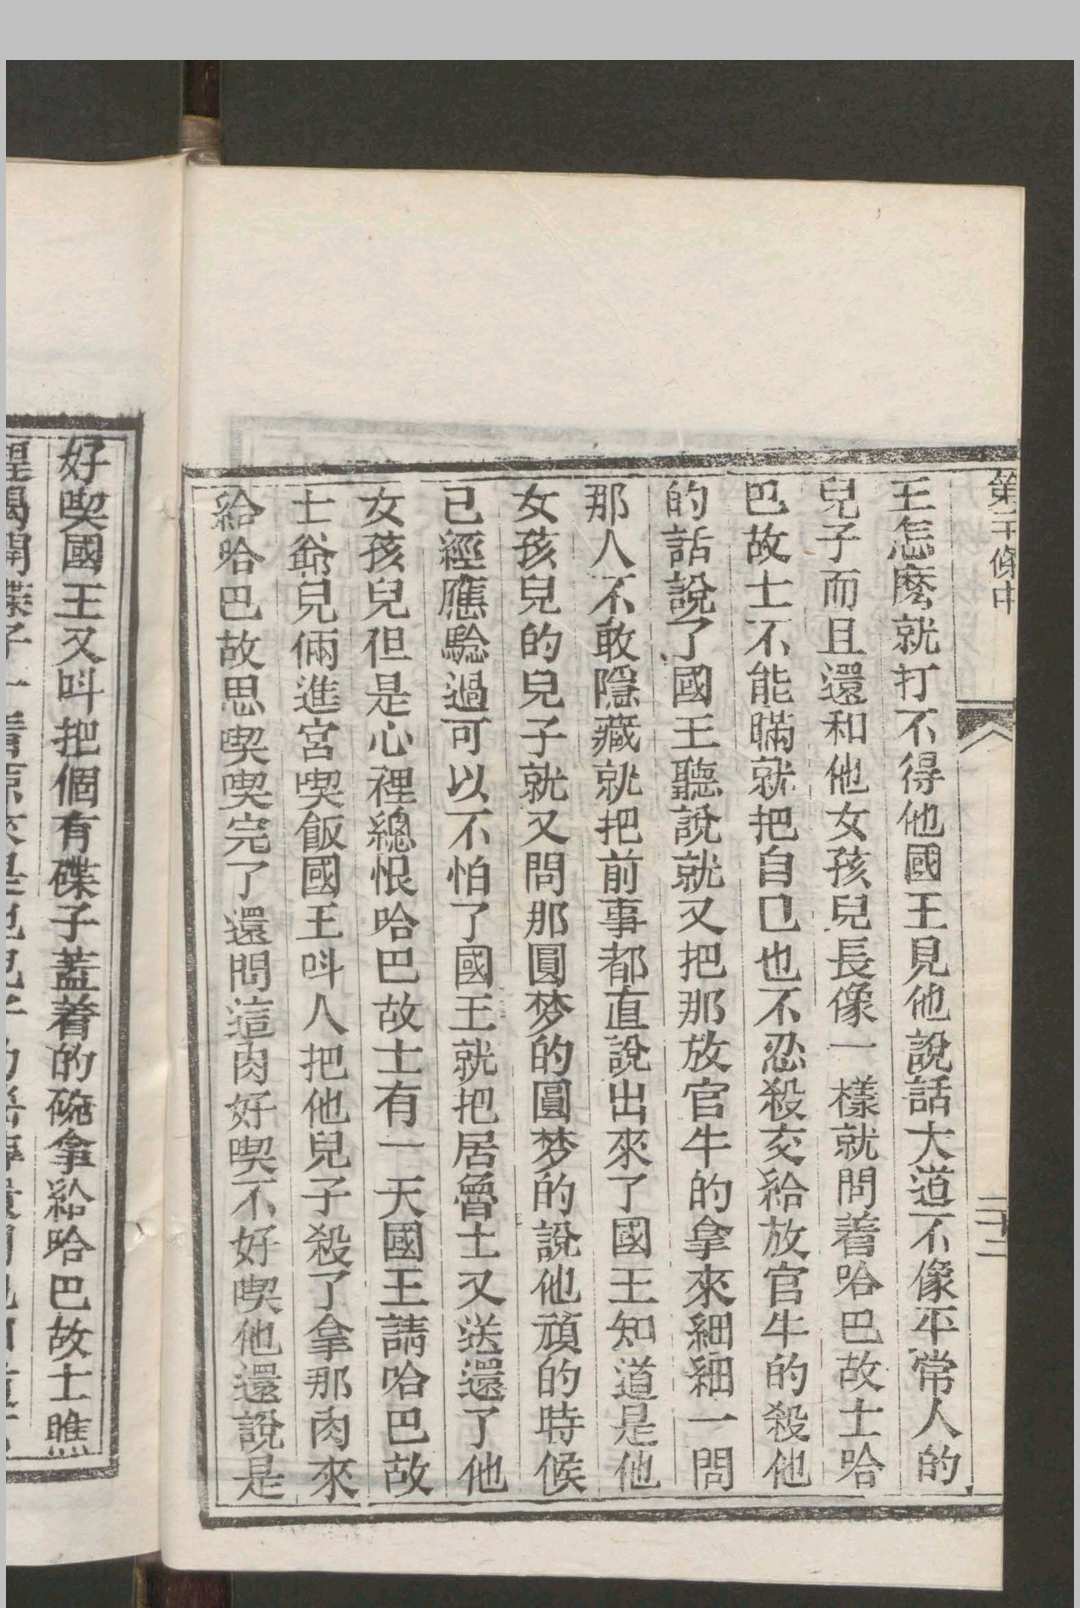 第二十條中
二十二
王怎麽就打不得他國王見他說話大道不像平常人的
兒子而且還和他女孩兒長像一樣就問着哈巴故士哈
巴故士不能瞞就把自己也不忍殺交給放官牛的殺他
的話說了國王聽說就又把那放官牛的拿來細細一問
那人不敢隱藏就把前事都直說出來了國王知道是他
女孩兒的兒子就又問那圓梦的圓梦的說他頑的時候
已經應驗過可以不怕了國王就把居魯士又送還了他
女孩兒但是心裡總恨哈巴故士有一天國王請哈巴故
士爺兒倆進宮喫飯國王呌人把他兒子殺了拿那肉來
給哈巴故思喫喫完了還問這肉好喫不好喫他還說是
好喫國王又呌把個有碟子蓋着的碗拿給哈巴故士瞧